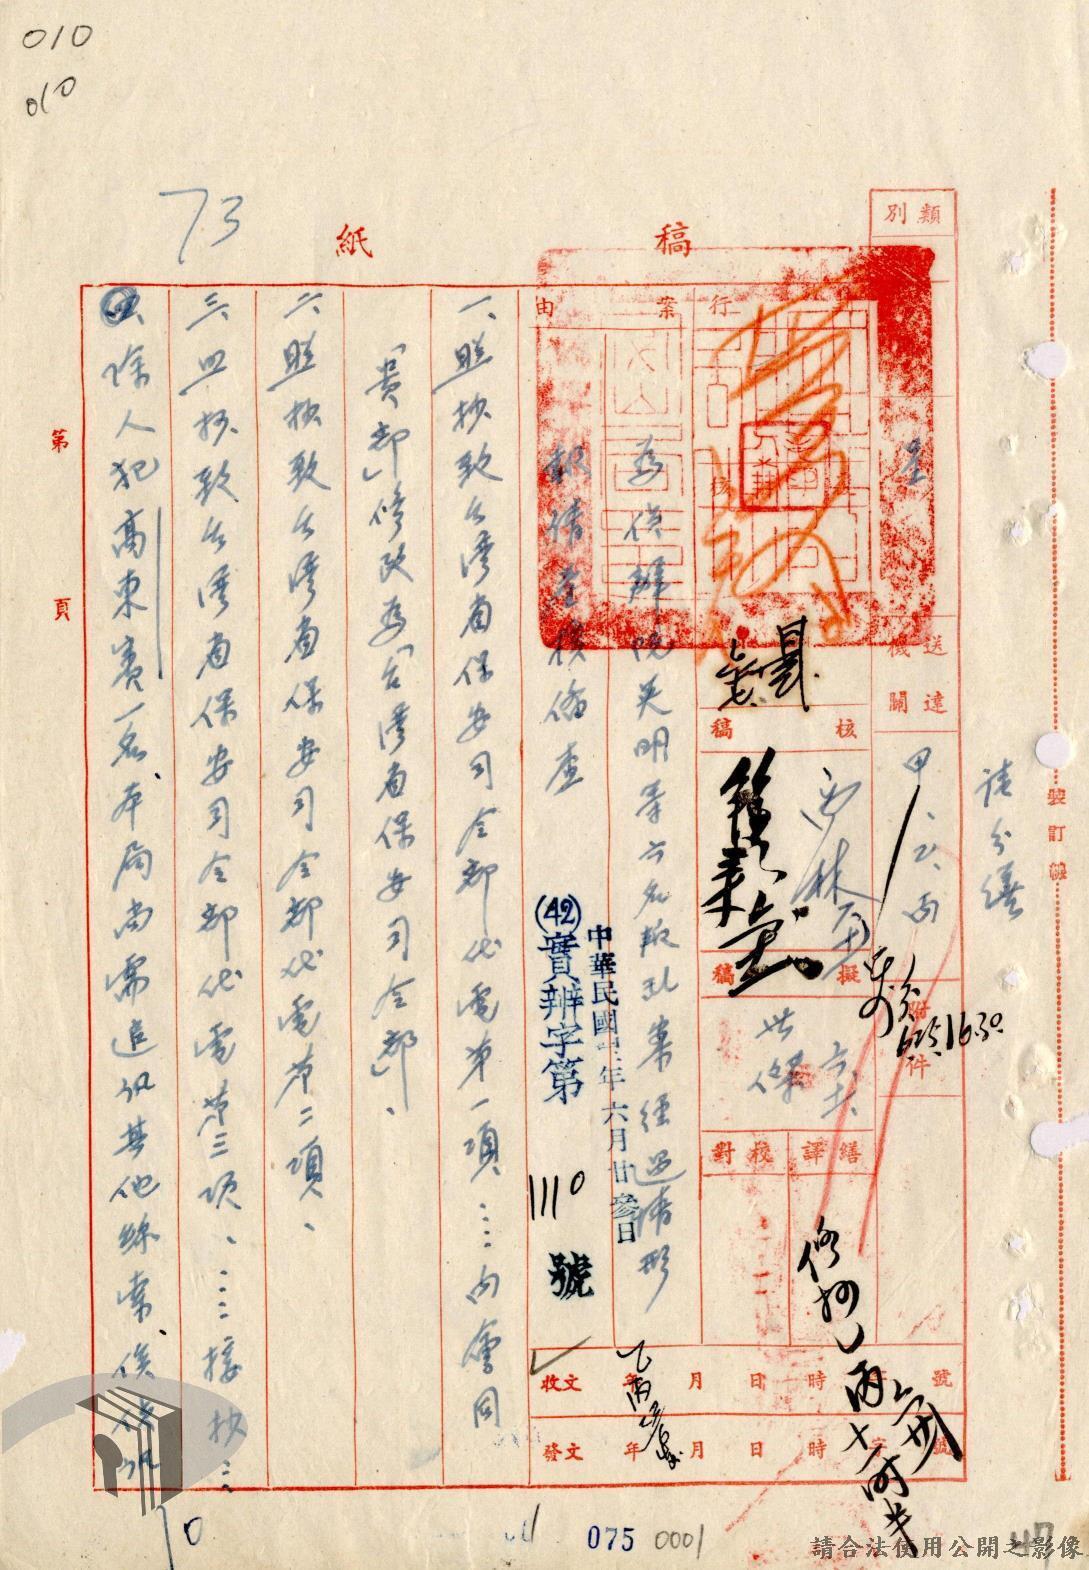 010
010
73
稿紙
類別
呈
送達機關
甲、乙、丙
請分繕
附件
裝訂線
案由
為偵辦
吳明等六名叛亂案經過情形
報請
核備查
核稿
擬稿
世傑
繕譯
校對
中華民國
年六月廿參日
(42)實辦字第
1110
號
收文 年 月 日 時 字 號
發文 年 月 日 時 字 號
一、照抄致台灣省保安司令部代電第一項……內會同
「貴部」修改為「台灣省保安司令部」、
二、照抄致台灣省保安司令部代電第二項、
三、照抄致台灣省保安司令部代電第三項、……接抄……
四、除人犯高東賽一名、本局尚需追訊其他線索、俟偵訊
第 頁
075
0001
請合法使用公開之影像